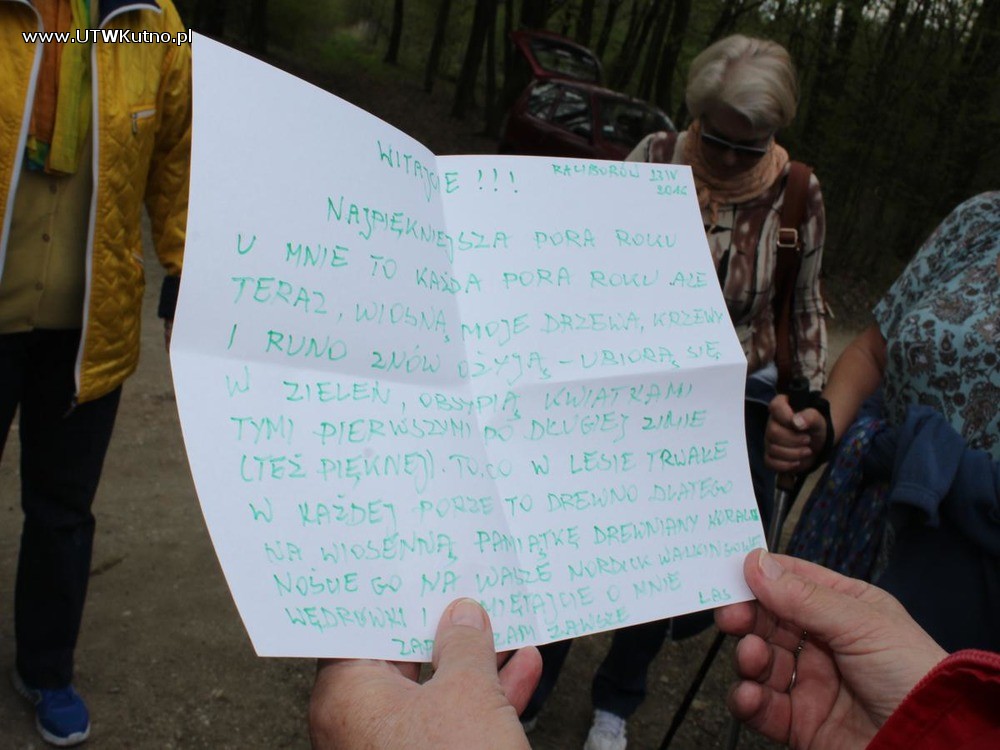 www.UTWKutno.pl
WITAJCIE !!! RACIBORÓW 23 IV
2016
NAJPIĘKNIEJSZA PORA ROKU
U MNIE TO KAŻDA PORA ROKU ALE
TERAZ, WIOSNĄ MOJE DRZEWA, KRZEWY
I RUNO ZNÓW OŻYJĄ – UBIORĄ SIĘ
W ZIELEŃ, OBSYPIĄ KWIATKAMI
TYMI PIERWSZYMI PO DŁUGIEJ ZIMIE
(TEŻ PIĘKNEJ). TO, CO W LESIE TRWAŁE
W KAŻDEJ PORZE TO DREWNO DLATEGO
NA WIOSENNĄ PAMIĄTKĘ DREWNIANY KORALIK
NOŚCIE GO NA WASZE NORDICK WALKINGOWE
WĘDRÓWKI I MIĘTAJCIE O MNIE
ZAP SZAM ZAWSZE LAS